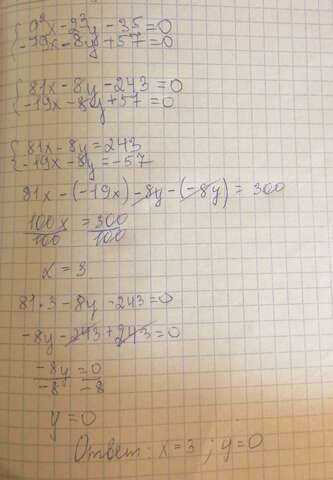 {9²x-2³y-3⁵=0
-19x-8y+57=0
{81x-8y-243=0
-19x-8y+57=0
{81x-8y=243
-19x-8y=-57
81x-(-19x)-8y-(-8y)=300
100x/100=300/100
x=3
81·3-8y-243=0
-8y-243+243=0
-8y/-8=0/-8
y=0
Ответ: x=3; y=0